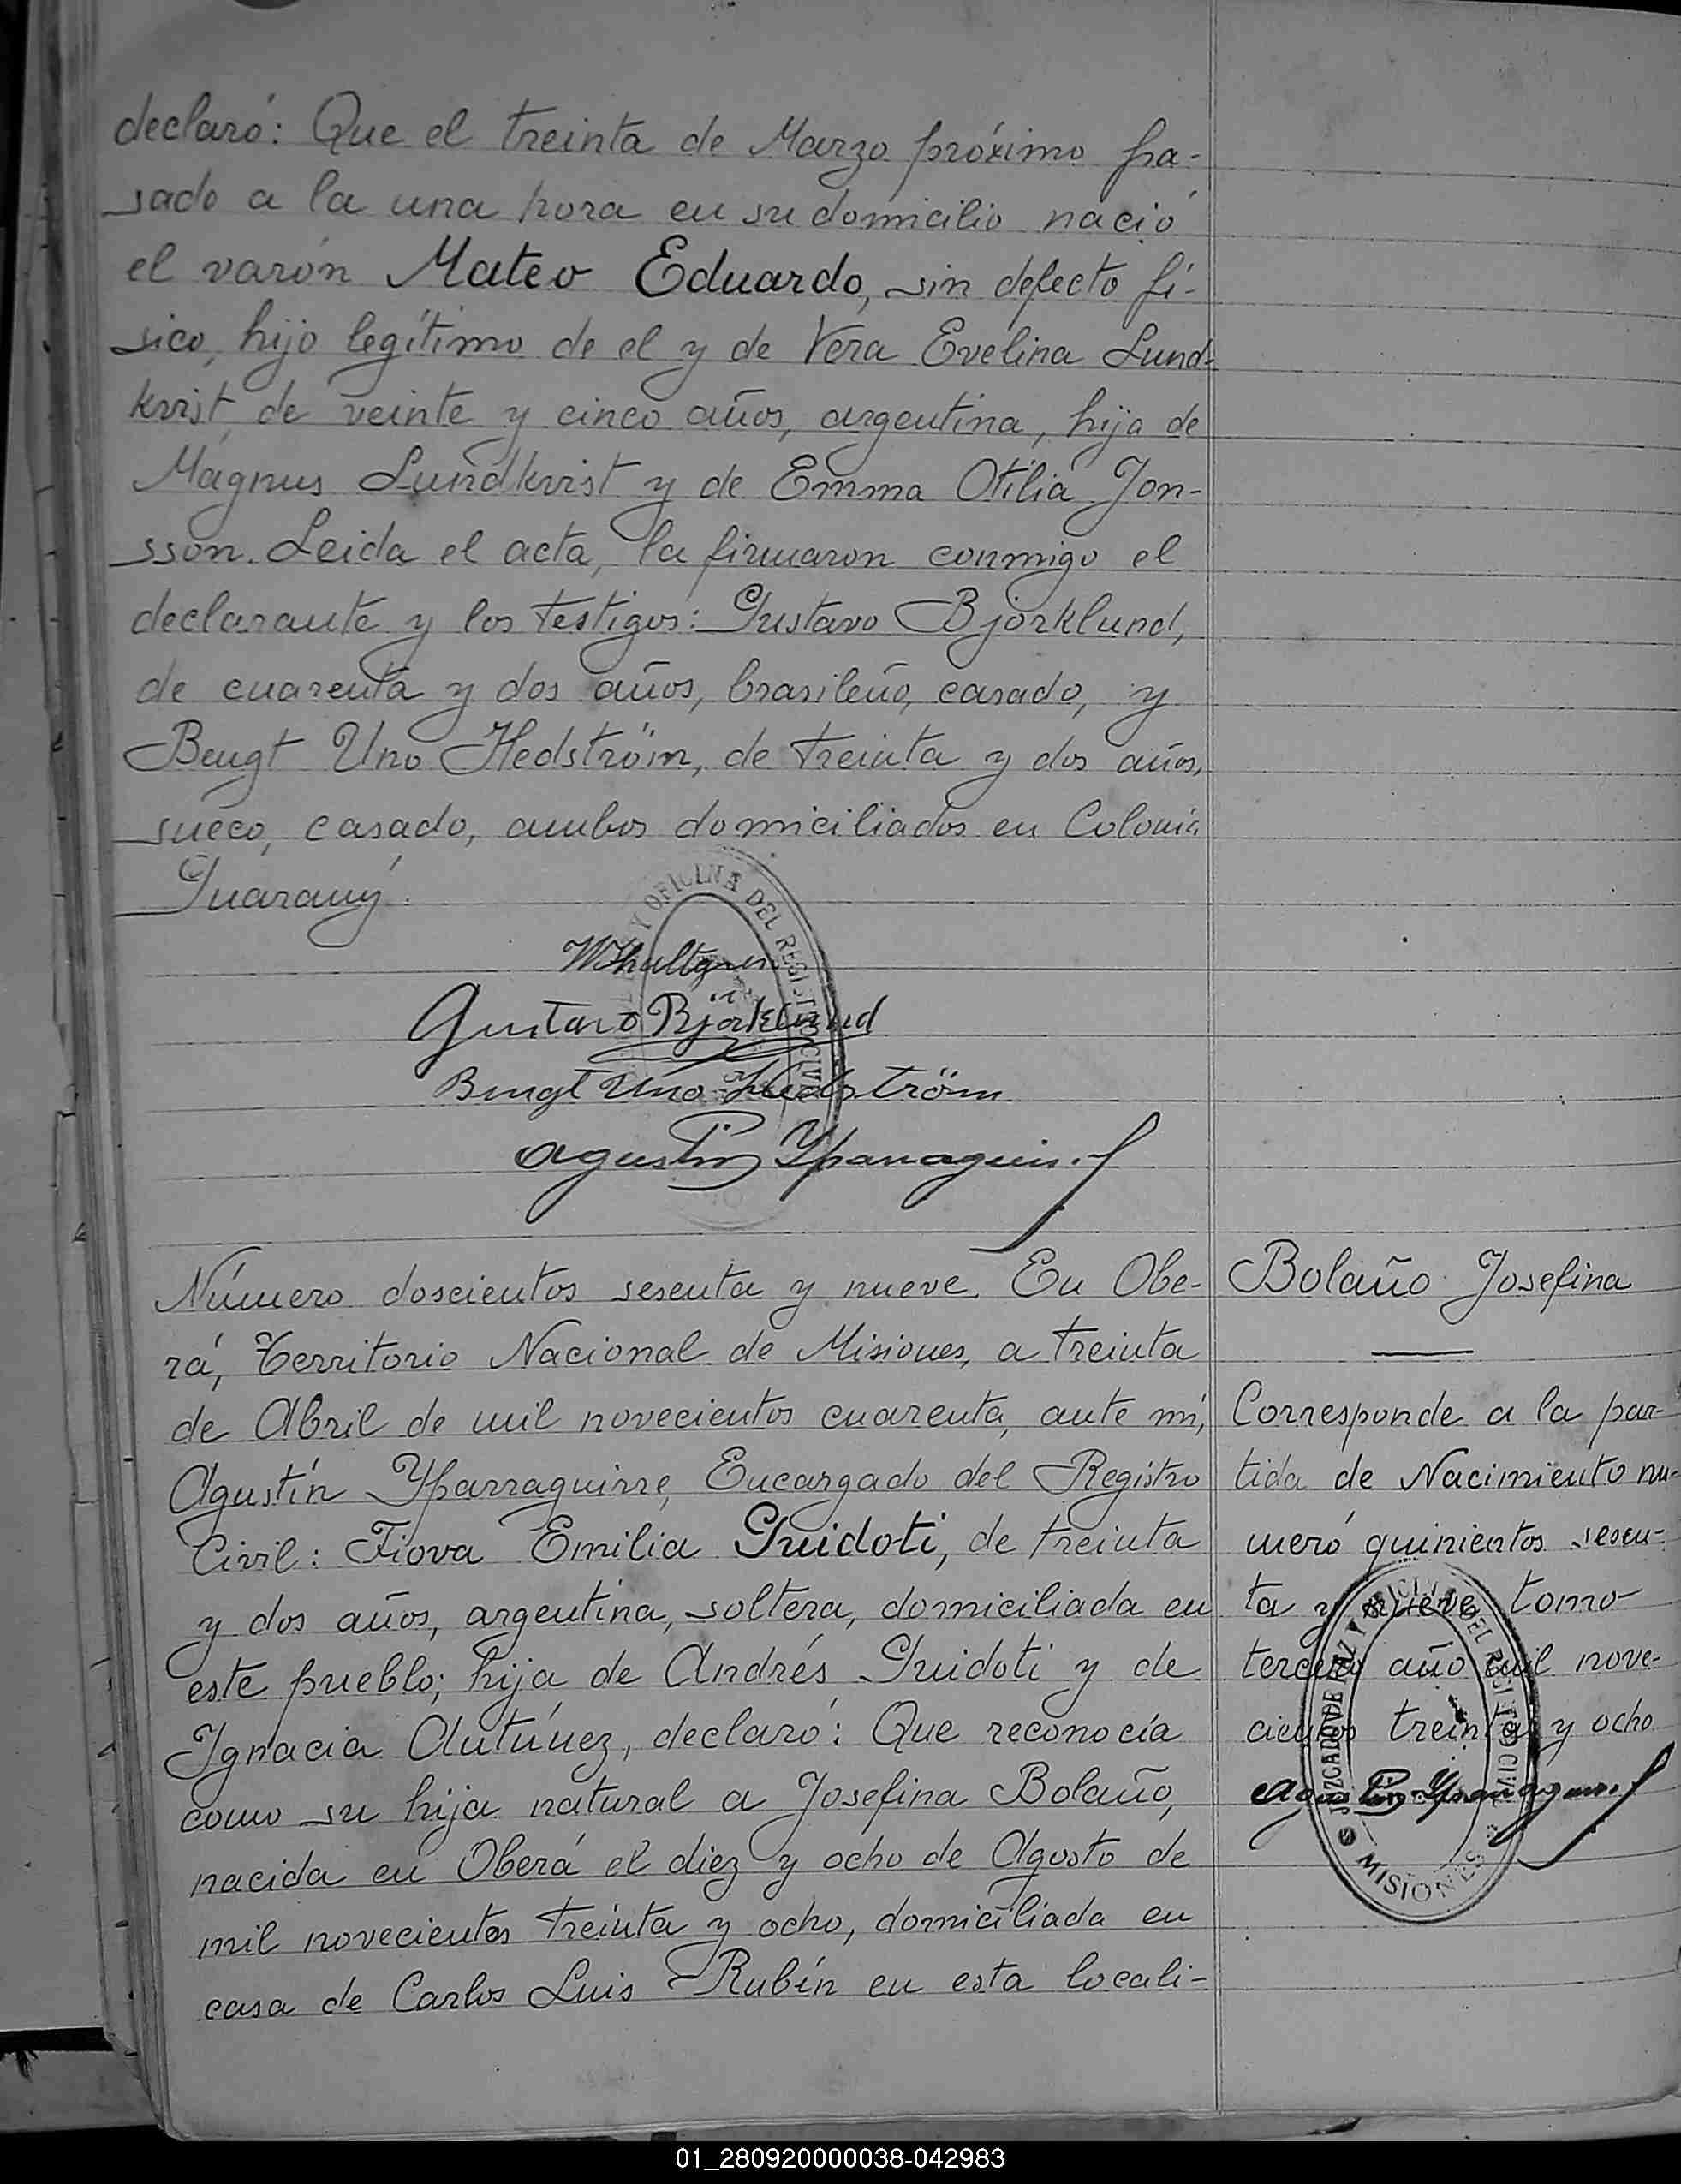 declaró: Que el treinta de Marzo próximo pa-
sado a la una hora en su domicilio nació
el varón Mateo Eduardo, sin defecto fí-
sico, hijo legítimo de el y de Vera Evelina Lund-
kvist, de veinte y cinco años, argentina, hija de
Magnus Lundkvist y de Emma Otilia Jon-
sson. Leida el acta, la firmaron conmigo el
declarante y los testigos: Gustavo Bjorklund,
de cuarenta y dos años, brasileño, casado, y
Bengt Uno Hedström, de treinta y dos años,
sueco, casado, ambos domiciliados en Colonia
Guarany.
Y OFICINA DEL REGISTRO CIVIL
Gustavo Björklund
Bengt Uno Hedström
Agustín Yparraguirre
Número doscientos sesenta y nueve. En Obe-
rá, Territorio Nacional de Misiones, a treinta
de Abril de mil novecientos cuarenta, ante mí,
Agustín Yparraguirre, Encargado del Registro
Civil: Fiova Emilia Guidoti, de treinta
y dos años, argentina, soltera, domiciliada en
este pueblo; hija de Andrés Guidoti y de
Ignacia Antúnez, declaró: Que reconocía
como su hija natural a Josefina Bolaño,
nacida en Oberá el diez y ocho de Agosto de
mil novecientos treinta y ocho, domiciliada en
casa de Carlos Luis Rubín en esta locali-
Bolaño Josefina
Corresponde a la par-
tida de Nacimiento nú-
mero quinientos sesen-
ta y nueve, tomo
tercero año mil nove-
cientos treinta y ocho
Agustín Yparraguirre
JUZGADO DE PAZ Y OFICINA DEL REGISTRO CIVIL
MISIONES
01_280920000038-042983